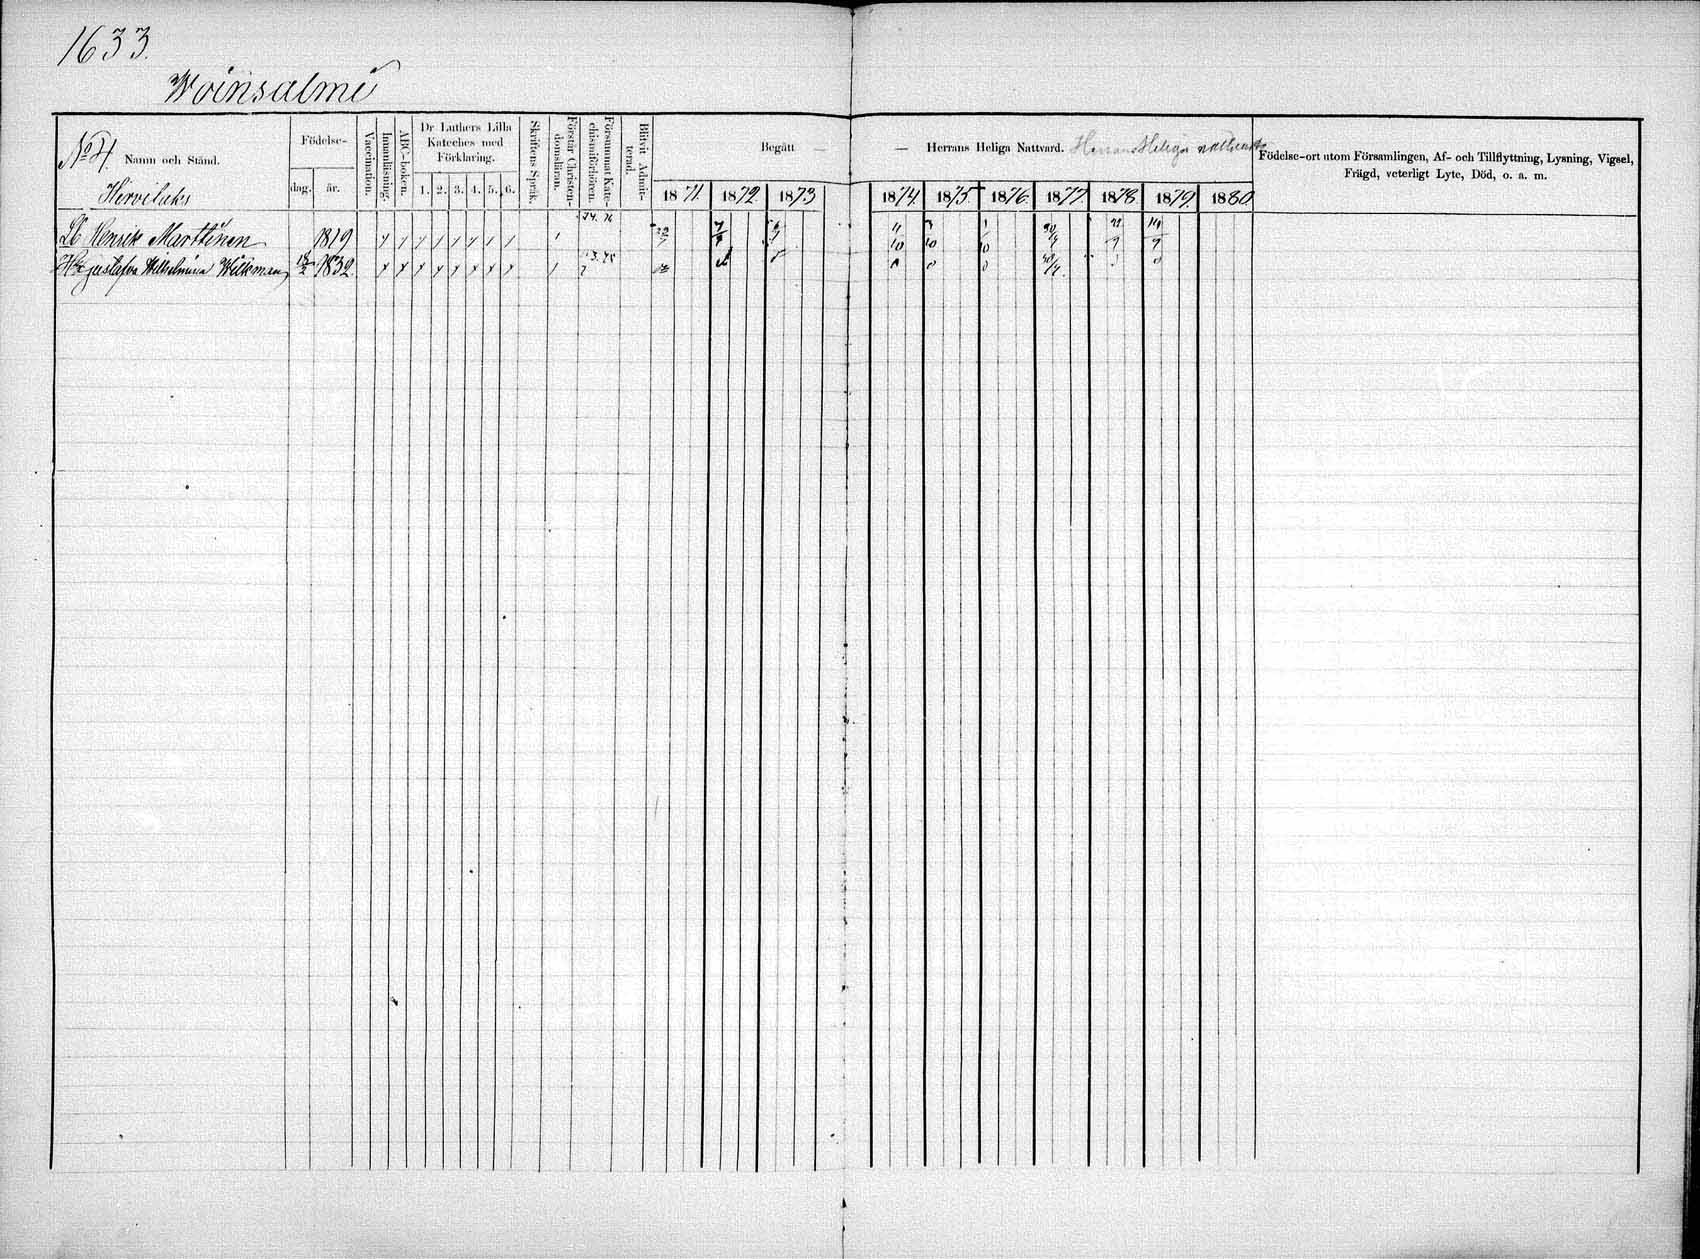 1633.
Woinsalmi
No 4. Namn och Stånd.
Hervilaks
Födelse-
dag. år.
Vaccination.
Innanläsning.
ABC-boken.
Dr Luthers Lilla
Kateches med
Förklaring.
1. 2. 3. 4. 5. 6.
Skriftens Språk.
Förstår Christen-
domsläran.
Försummat Kate-
chismiförhören.
Blifvit Admit-
terad.
Begått —
1871. 1872 1873
— Herrans Heliga Nattvard. Herrans Heliga nattvard
1874. 1875. 1876. 1877. 1878. 1879. 1880
Födelse-ort utom Församlingen, Af- och Tillflyttning, Lysning, Vigsel,
Frägd, veterligt Lyte, Död, o. a. m.
Henrik Marttinen 1819
Gustafva Wilhelmina Wilkman 1832.